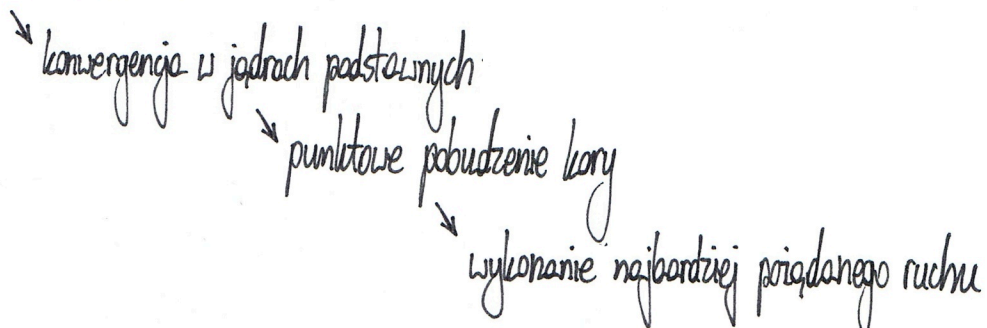 ↘ konwergencja w jądrach podstawnych
↘ punktowe pobudzenie kory
↘ wykonanie najbardziej pożądanego ruchu